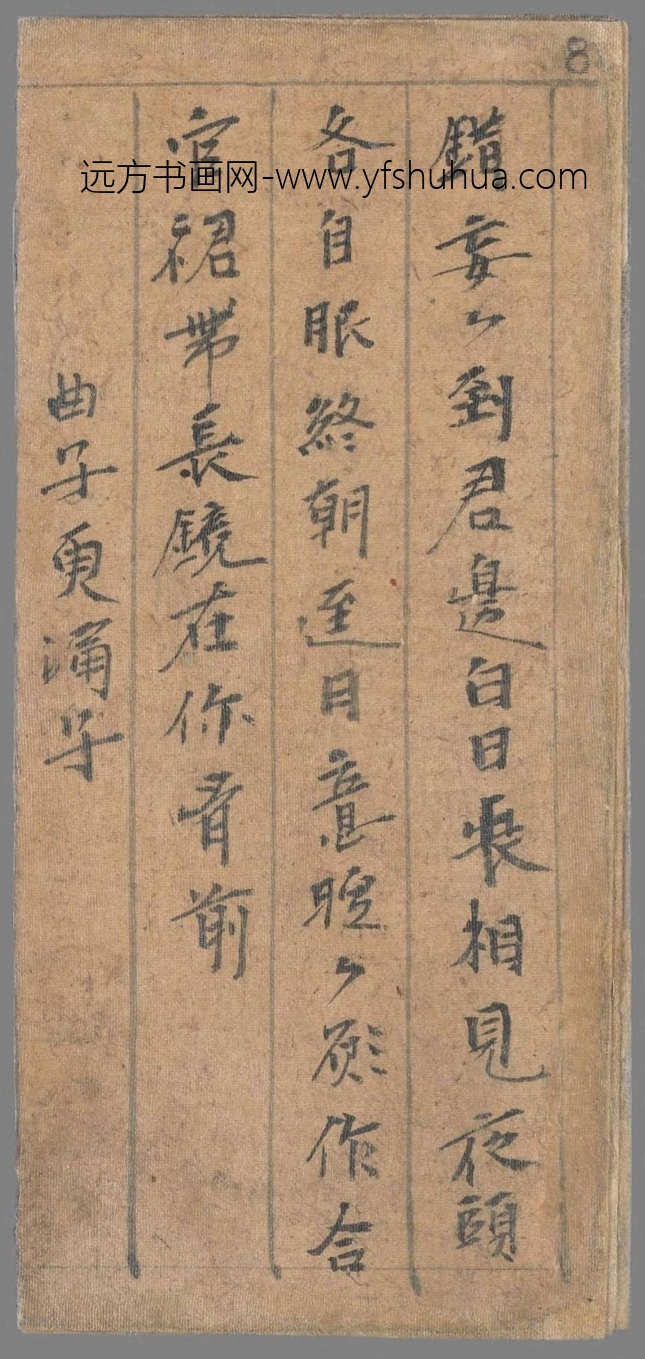 8
远方书画网-www.yfshuhua.com
錯妄〻到君邊白日長相見夜頭
各自眠終朝逕日意𥈭〻願作合
官裙帶長鏡在你肯前
曲子更漏子